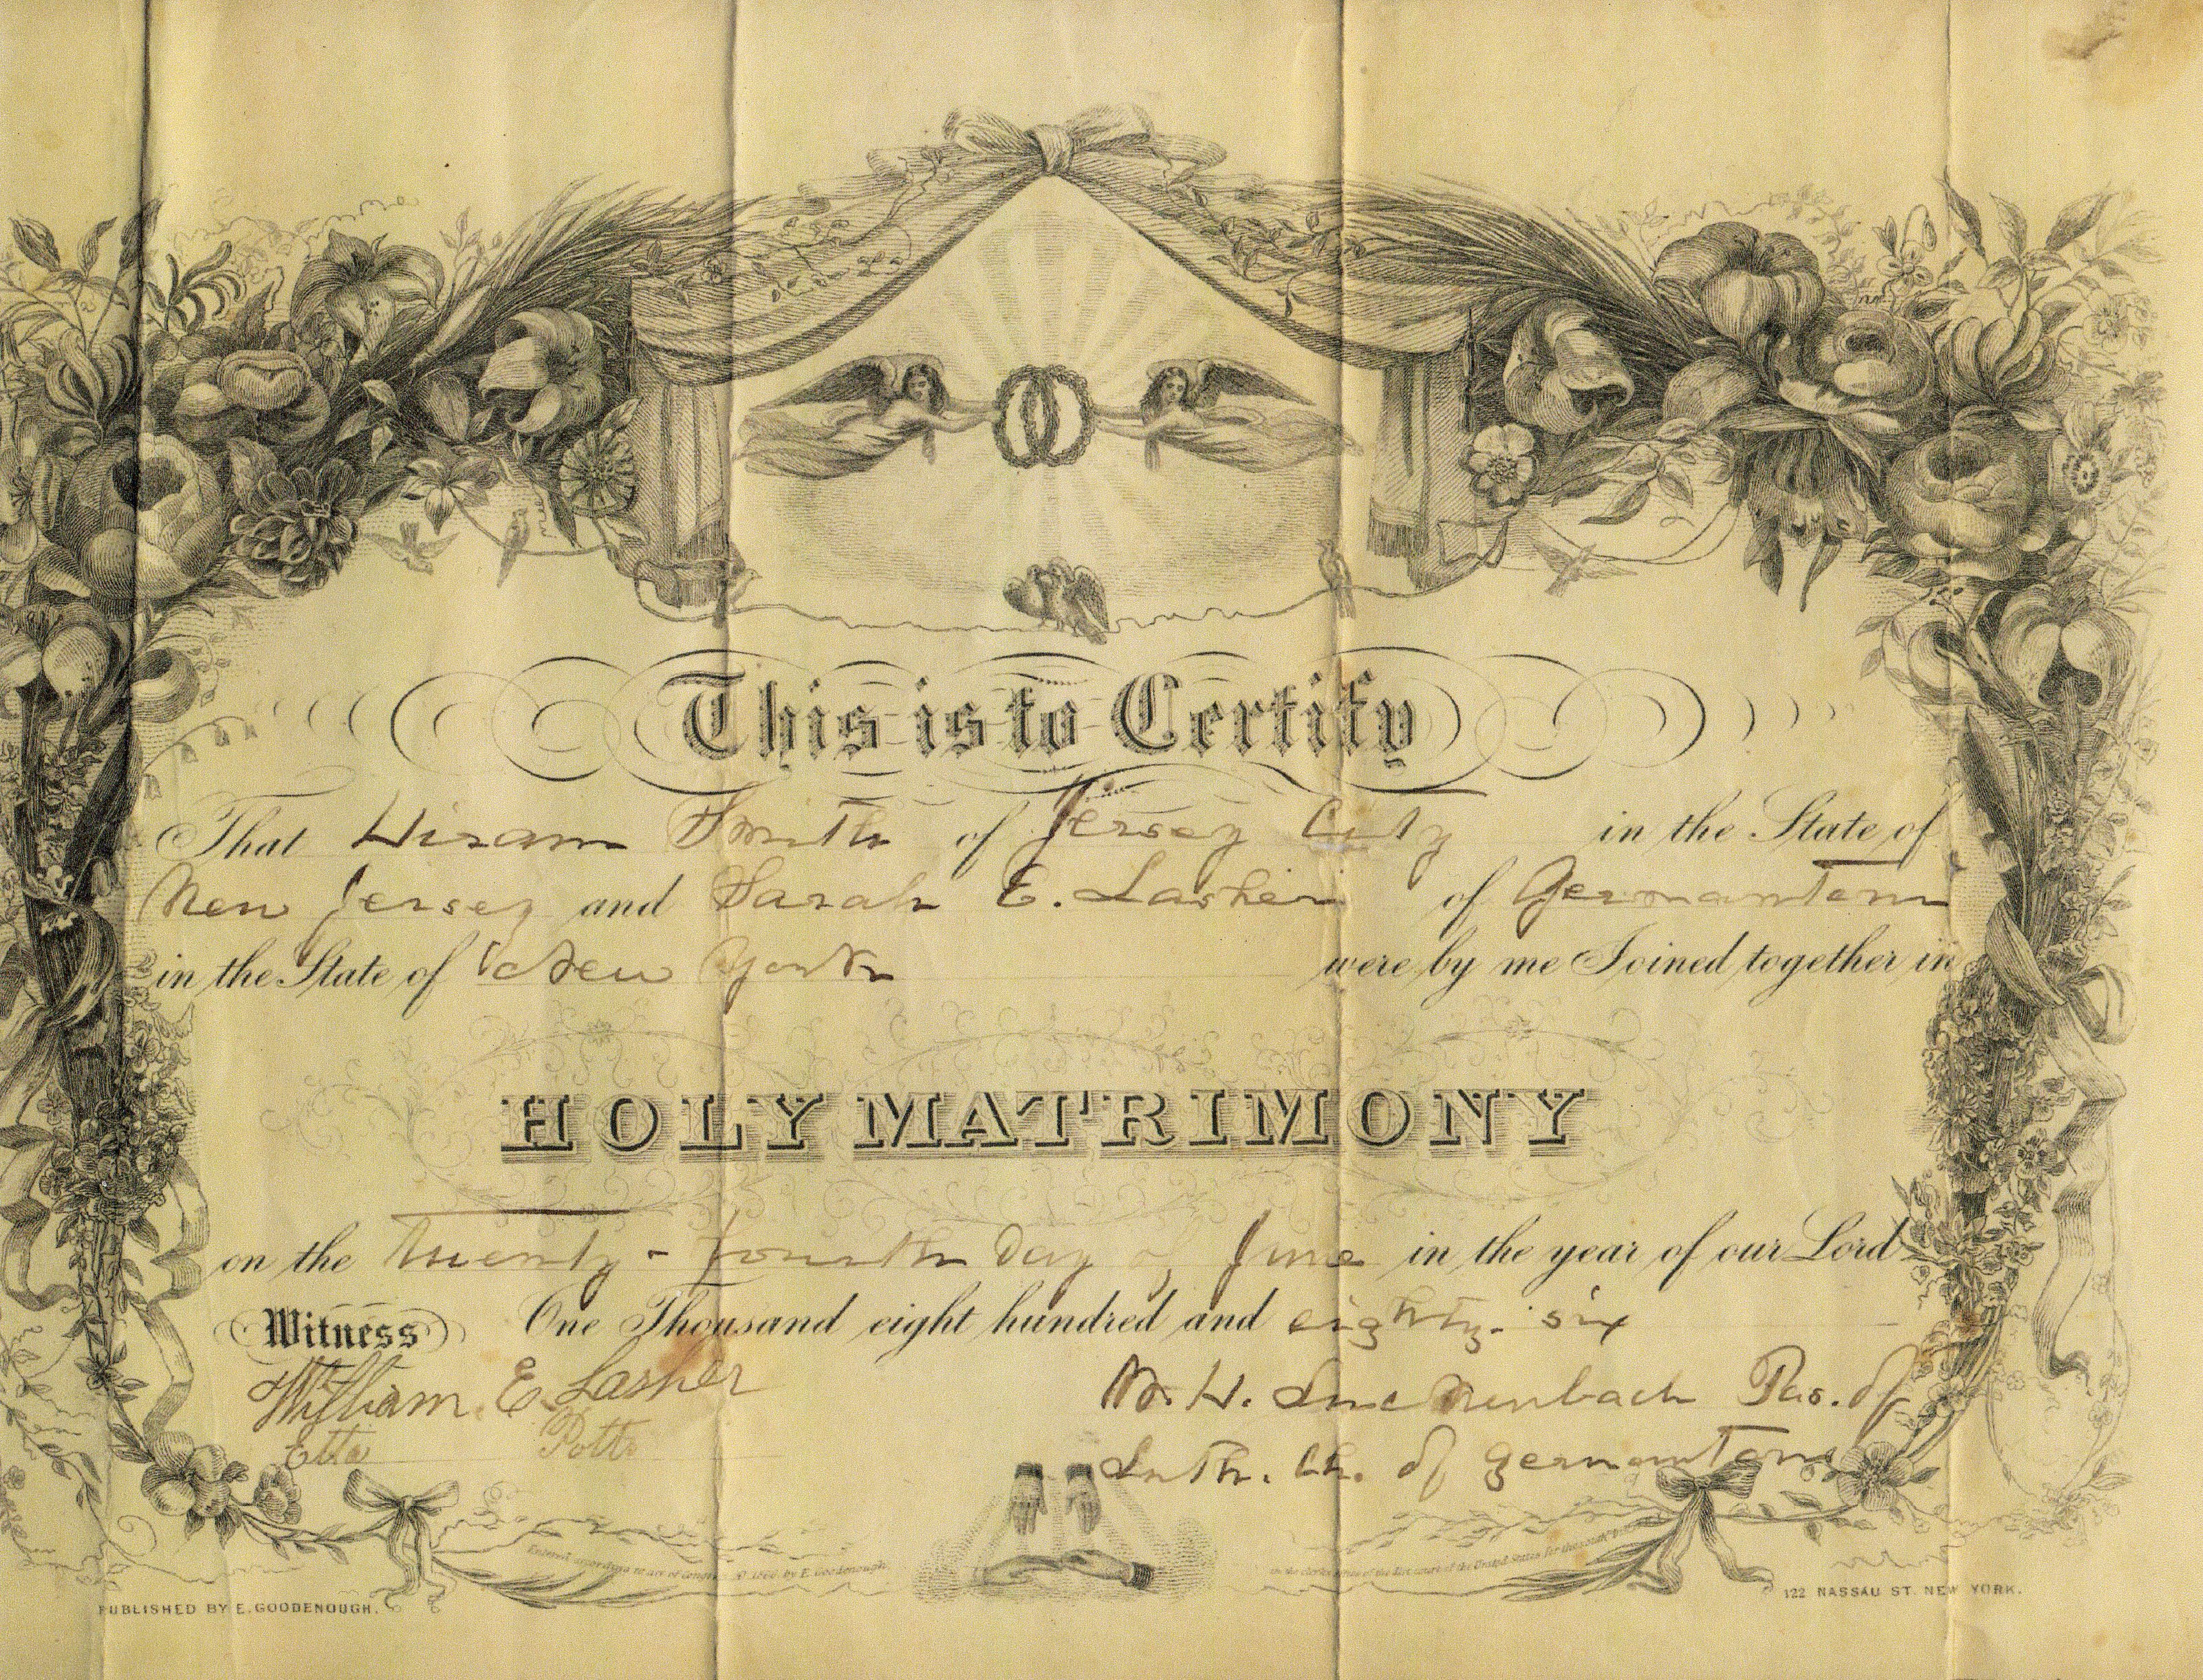 This is to Certify
That Hiram Smith of Jersey City in the State of
New Jersey and Sarah E. Lasher of Germantown
in the State of New York were by me Joined together in
HOLY MATRIMONY
on the Twenty-fourth day of June in the year of our Lord
One Thousand eight hundred and eighty-six
Witness
William E. Lasher
Etta Potts
W. H. Luckenbach Pas. of
Luth. Ch. of Germantown
Entered according to act of Congress by E. Goodenough
in the clerks office of the Dist. court of the United States for the south
PUBLISHED BY E. GOODENOUGH.
122 NASSAU ST. NEW YORK.